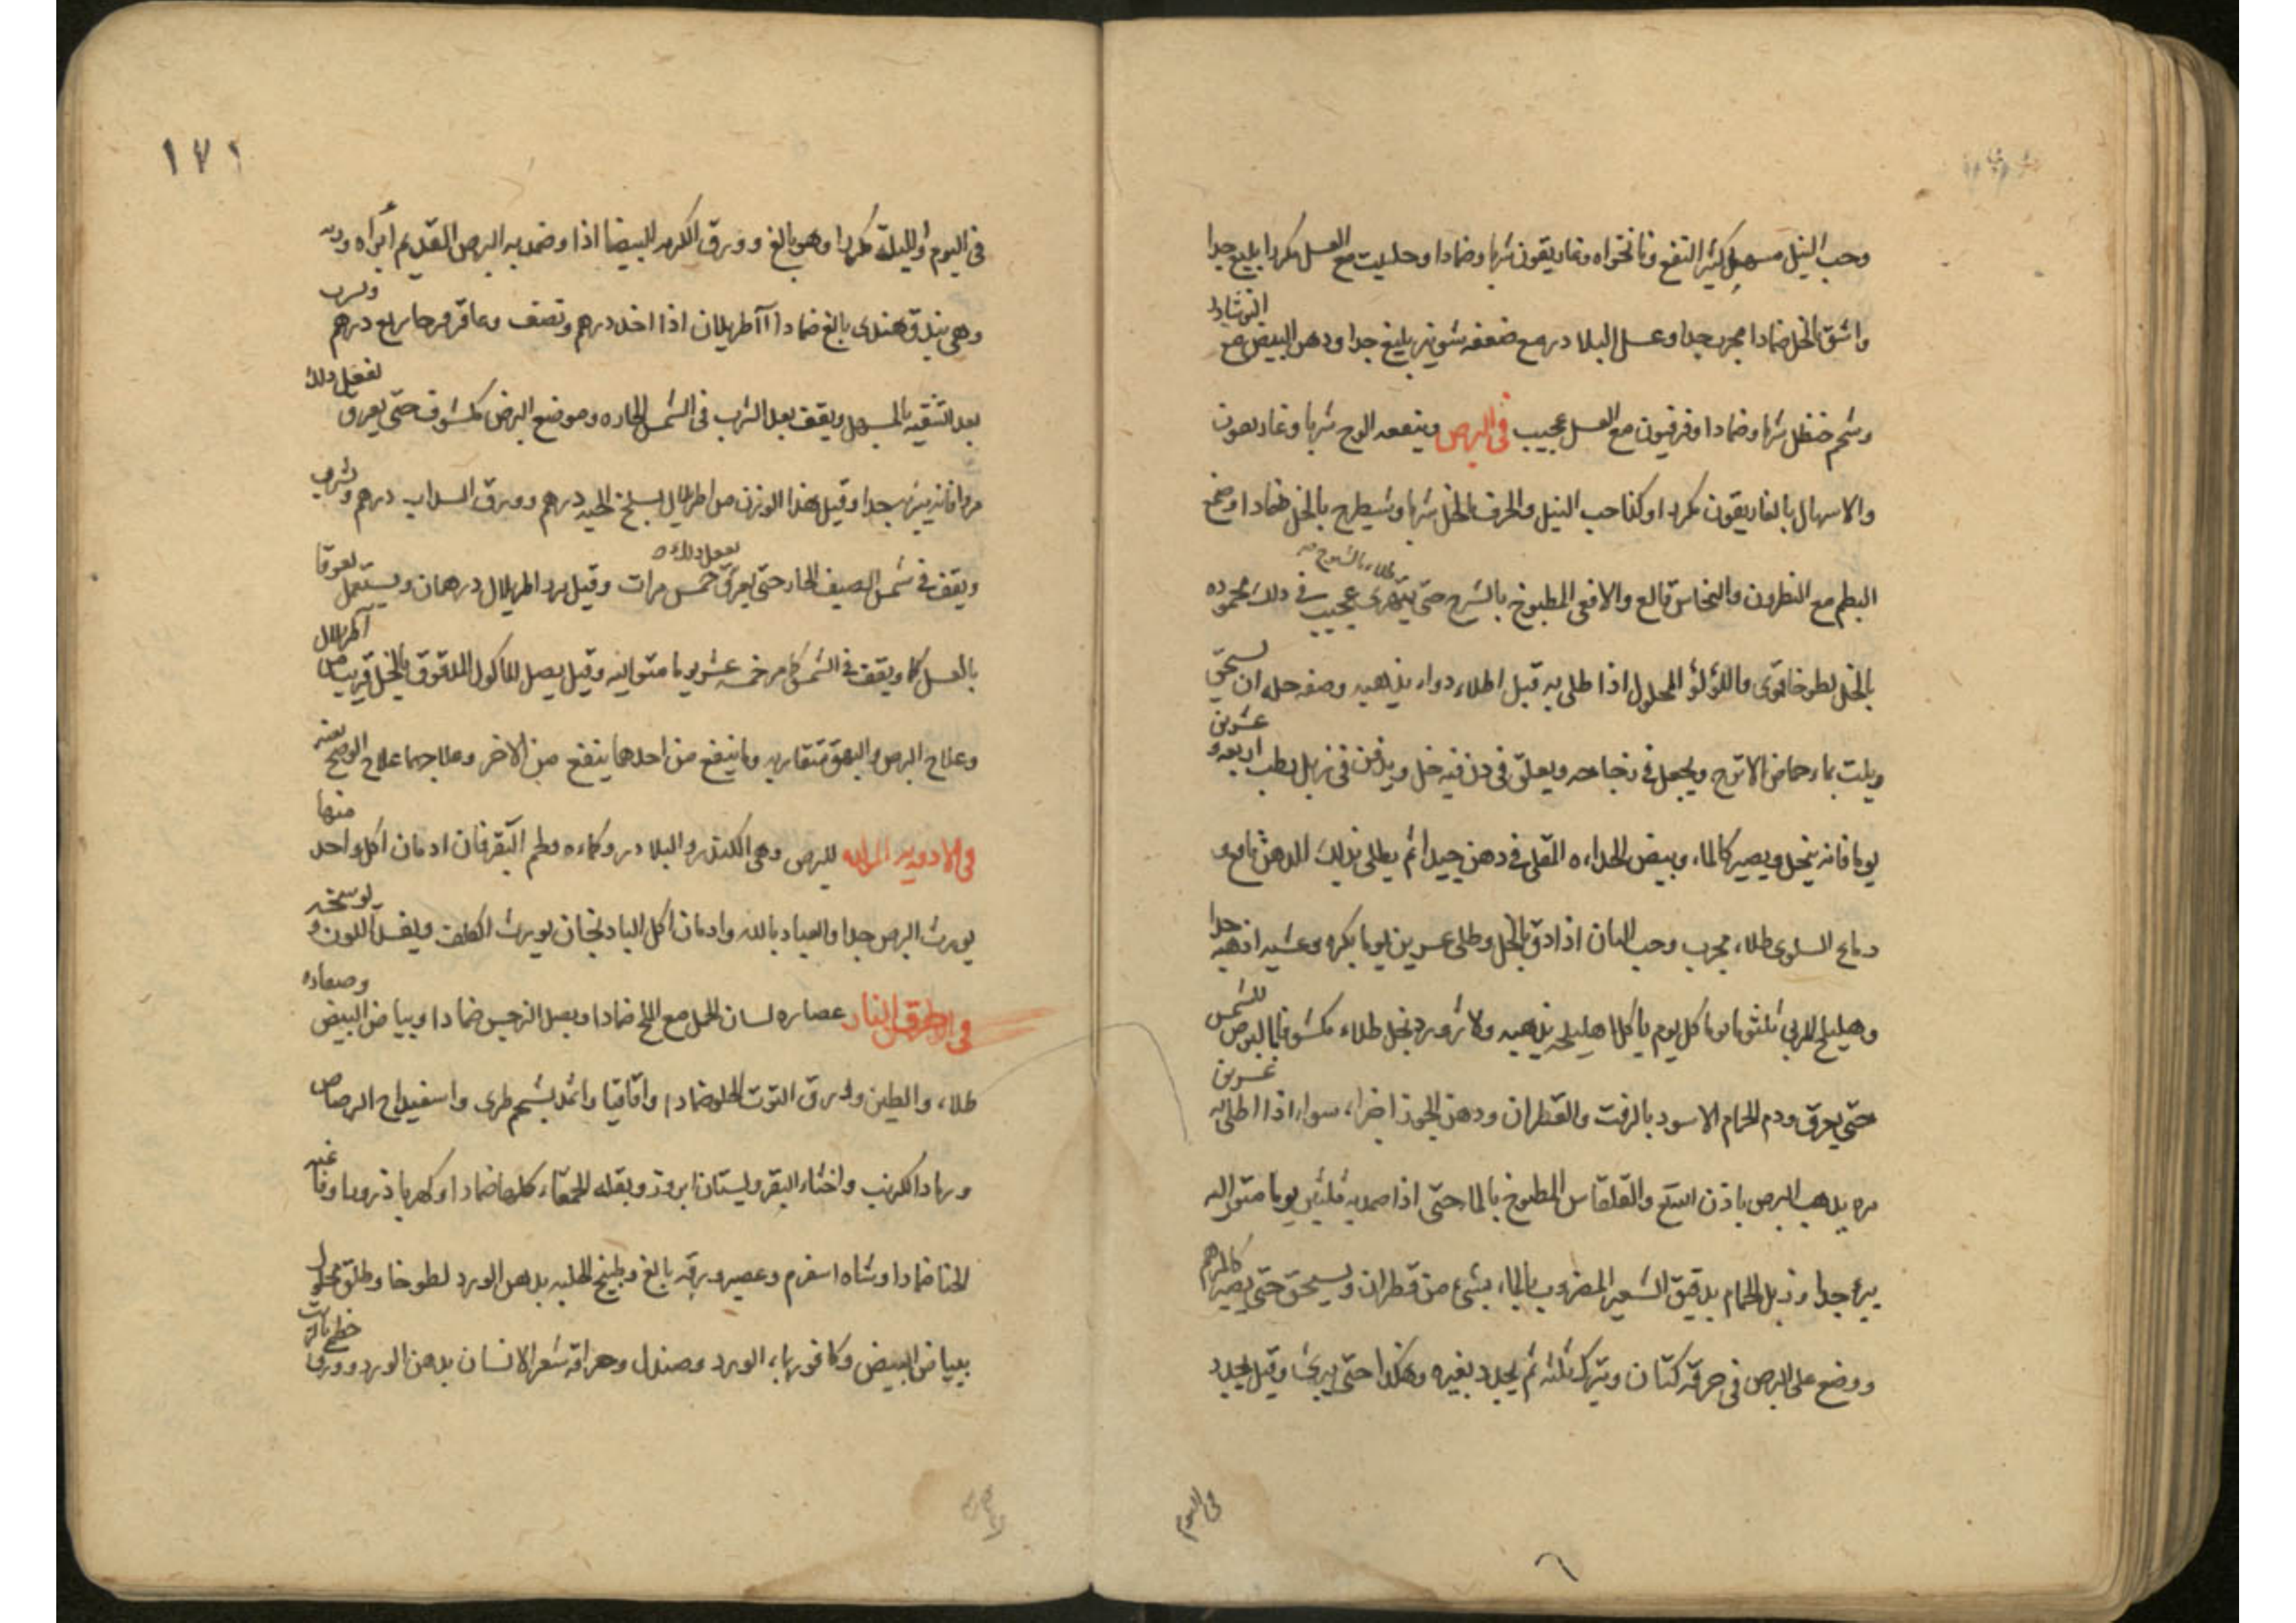 وحب النيل مسهل كثير النفع ونانخواه وغاريقون شربا وضمادا وحلتيت مع العسل مكررا بليغ جدا
واشق بالخل ضمادا مجرب جدا وعسل البلادر مع ضعفه شونيز بليغ جدا ودهن البيض مع النوشادر
وشحم حنظل شربا وضمادا وفرفيون مع العسل عجيب في البرص وينفعه الوج شربا وغاريقون
والاسهال بالغاريقون مكررا وكذا حب النيل والحرف بالخل شربا وشيطرج بالخل ضمادا وصمغ
البطم مع النطرون والنحاس قالع والافعى المطبوخ بالشيرج حتى يتهرى عجيب في ذلك محموده
بالخل لطوخا قوي واللؤلؤ المحلول اذا طلى به قبل اطلاء دواء يذهبه وصفه حله ان يسحق
ويلت بماء حماض الاترج ويجعل في زجاجه ويعلق في دن فيه خل ويدفن في زبل رطب اربعه وعشرين
يوما فانه ينحل ويصير كالماء وبيض الحداءه المقلى في دهن جيدا ثم يطلى بذلك الدهن نافع و
دماغ السلوى طلاء مجرب وحب البان اذا دق بالخل وطلى عشرين يوما بكره وعشيه اذهبه جدا
وهليلج المربى ثلثون يوما كل يوم ياكل اهليلجه يذهبه ولازورد بخل طلاء مكشوفا بالبرص للشمس
حتى يعرق ودم الحمام الاسود بالزفت والقطران ودهن الجوز اجزاء سواء اذا طلى به عشرين
مره يذهب البرص باذن الله تع والقلقاس المطبوخ بالماء حتى اذا ضمد به ثلثين يوما متواليه
يبرء جدا وزبل الحمام بدقيق الشعير المضروب بالماء بشئ من قطران ويسحق حتى يصير كالمرهم
ووضع على البرص في خرقه كتان ويترك ثلثه ثم يجدد بغيره وهكذا حتى يبرئ وقيل يجدد
في اليوم
١٧١
في اليوم والليلة مكررا وهو بالغ وورق الكرم البيضا اذا وضمد به البرص القديم ابراه ورته
وهي بندق هندى بالغ ضمادا آاطريلان اذا اخذ درهم ونصف وعاقرقرحا ربع درهم وشرب
بعد التنقيه بالمسهل ويقف بعد الشرب في الشمس الحاره وموضع البرص مكشوف حتى يعرق يفعل ذلك
مرارا فانه يبرئه جدا وقيل هذا الوزن من اطريلال بسلخ الحيه درهم وورق السداب درهم وشرب
ويقف في شمس الصيف الحار حتى يعرق يفعل ذلك خمس مرات وقيل بزر اطريلال درهمان ويستعمل لعوقا
بالعسل كما ويقف في الشمس كما مر خمسه عشر يوما متواليه وقيل بصل الماكول المدقوق بالخل قريب من آطريلال
وعلاج البرص والبهق متقاربه وما ينفع من احدهما ينفع من الاخر وعلاجهما علاج الوضح بعينه
في الادويه المولده للبرص وهي الكندر والبلادر وكماءه ولحم البقر فان ادمان اكل واحد منها
يورث البرص جدا والعياذ بالله وادمان اكل الباذنجان يورث الكلف ويفسد اللون و يوسخه
في حرق النار عصاره لسان الحمل مع الملح ضمادا وبصل النرجس ضمادا وبياض البيض وضماده
طلاء والطين وورق التوت الحلو ضمادا واقاقيا واثمد بشحم طرى واسفيداج الرصاص
ورماد الكرنب واخثاء البقر وبستان ابروز وبقله الحمقاء كلها ضمادا وكهربا ذرورا وفاغيه
الحنا ضمادا وشاه اسفرم وعصير ورقه بالغ وطبيخ الحلبه بدهن الورد لطوخا وطلق محلول
ببياض البيض وكافور بماء الورد وصندل وحراقه شعر الانسان بدهن الورد وورق خطمى بالزيت